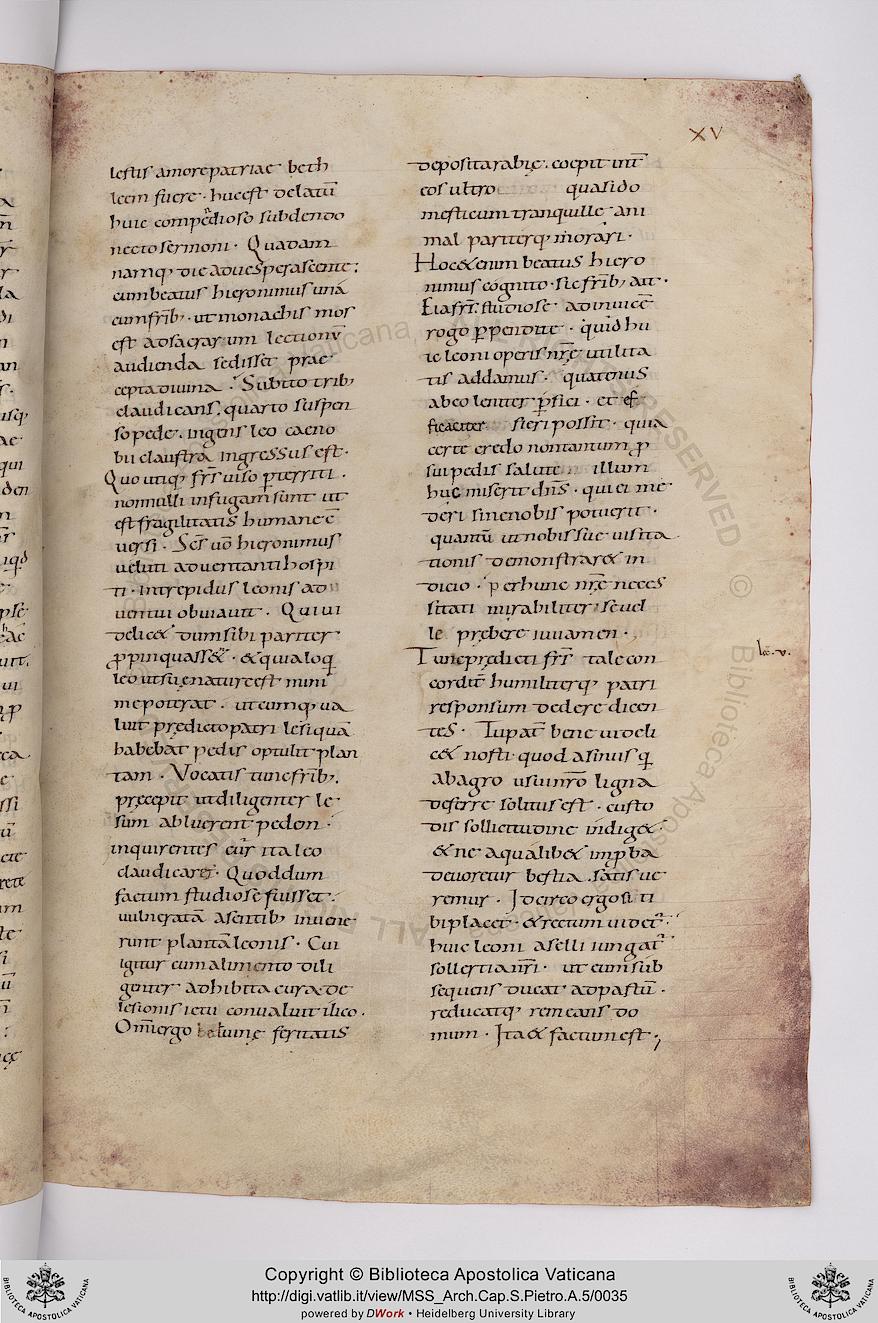 XV
lestis amore patriae beth
leem fuere · huc est delatū
huic compendioso subdendo
necto sermoni · Quadam
namq; die advesperascente:
cum beatus hieronimus unā
cum frīb; ut monachis mos
est ad sacrarum lectionū
audienda sedisset prae
cepta divina · Subito trib;
claudicans, quarto suspen
so pede · ingens leo caeno
bii claustra ingressus est ·
Quo utiq; frs̄ viso pterriti ·
nonnulli in fugam sunt ut
est fragilitatis humane c̄
versi · Scs̄ uō hieronimus
veluti advenienti hospi
ti · intrepidus leonis ad
ventui obviavit · Qui ui
delic& dum sibi pariter
ppinquass& · & quia loq
leo ut suę naturę est mini
me poterat · utcumq; ua
luit prędicto patri lesi quā
habebat pedis optulit plan
tam · Vocatis tunc frīb;
pręcepit ut diligenter le
sum abluerent pedem ·
inquirentes cur ita leo
claudicaret · Quod dum
factum studiose fuisset ·
vulneratā a sentib; invene
runt plantā leonis · Cui
igitur cum alimento dili
genter adhibita cura de
lesionis ictu convaluit ilico ·
Om̄i ergo beluinę feritatis
deposita rabię · coepit int̄
eos ultro quasi do
mesticum tranquille ani
mal pariterq; morari ·
Hoc & enim beatus hiero
nimus cognito · sic frīb; ait ·
Eia frs̄ · studiose ad invicē
rogo ppendite · quid hu
ic leoni operis nrę utilita
tis addamus · quatenus
ab eo leniter psici · et ef
ficaciter fieri possit · quia
certe credo non tantum p
sui pedis salute illum
huc miserit dn̄s · qui ei me
deri sine nobis potuerit ·
quantū ut nobis suę visita
tionis demonstrar& in
dicio · per hunc nrę neces
sitati mirabiliter se vel
le prębere iuvamen ·
Tunc prędicti frs̄ tale con
cordit̄ humiliterq; patri
responsum dedere dicen
tes · Tu pat̄ bene videli
c& nosti quod asinus q
ab agro usui nr̄o ligna
deferre solitus est · custo
dis sollicitudine indig& ·
& ne a qualib& improba
devoretur bestia · satis ve
remur · Idcirco ergo si ti
bi placet · & rectum videt̄ ·
huic leoni aselli iungat̄
sollertia nr̄i · ut eum sub
sequens ducat ad pastū ·
reducatq; remeans do
mum · Ita & factum est ·
lec. v.
Copyright © Biblioteca Apostolica Vaticana
http://digi.vatlib.it/view/MSS_Arch.Cap.S.Pietro.A.5/0035
powered by DWork • Heidelberg University Library